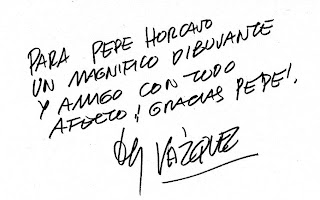 PARA PEPE HORCAJO
UN MAGNIFICO DIBUJANTE
Y AMIGO CON TODO
AFECTO ¡GRACIAS PEPE!
By VÁZQUEZ